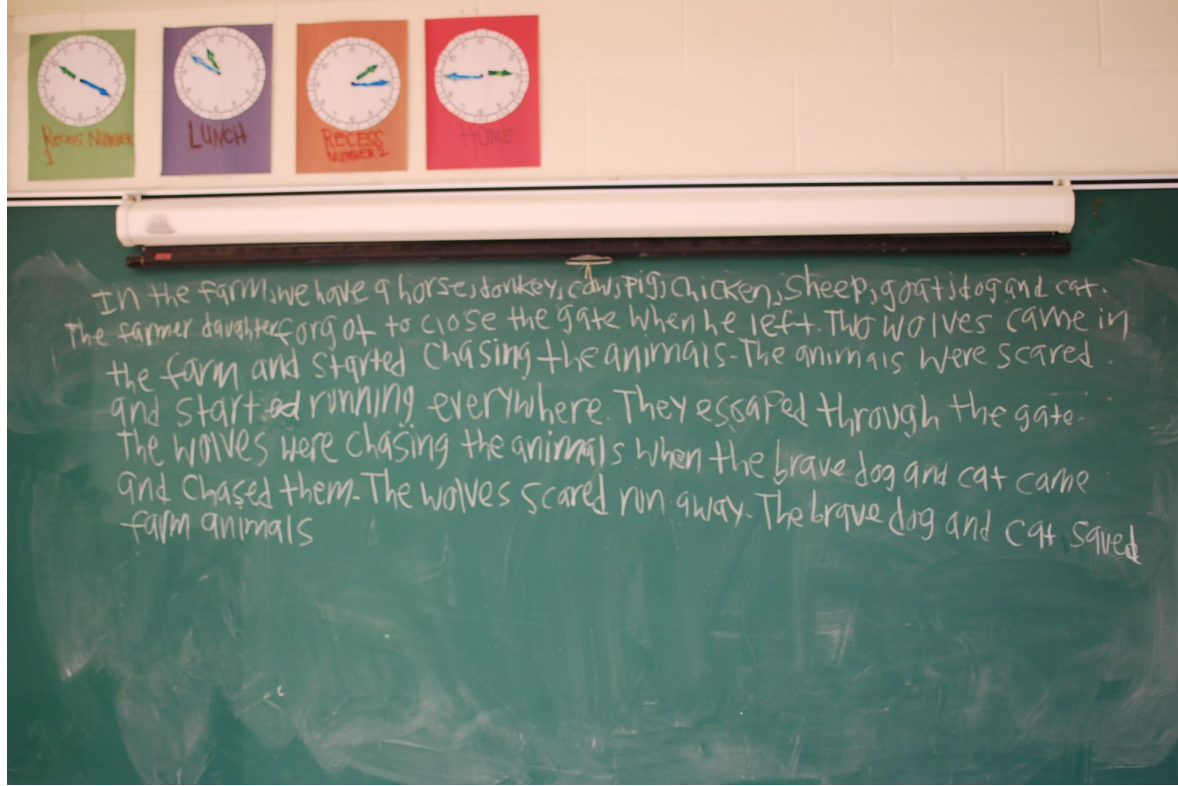 Recess Number
1
LUNCH
RECESS
NUMBER 2
HOME
In the farm, we have a horse, donkey, cow, pig, chicken, sheep, goat, dog and cat.
The farmer daughter forgot to close the gate when he left. Two wolves came in
the farm and started chasing the animals. The animals were scared.
and started running everywhere. They essaped through the gate.
The wolves were chasing the animals when the brave dog and cat came
and chased them. The wolves scared run away. The brave dog and cat saved
farm animals